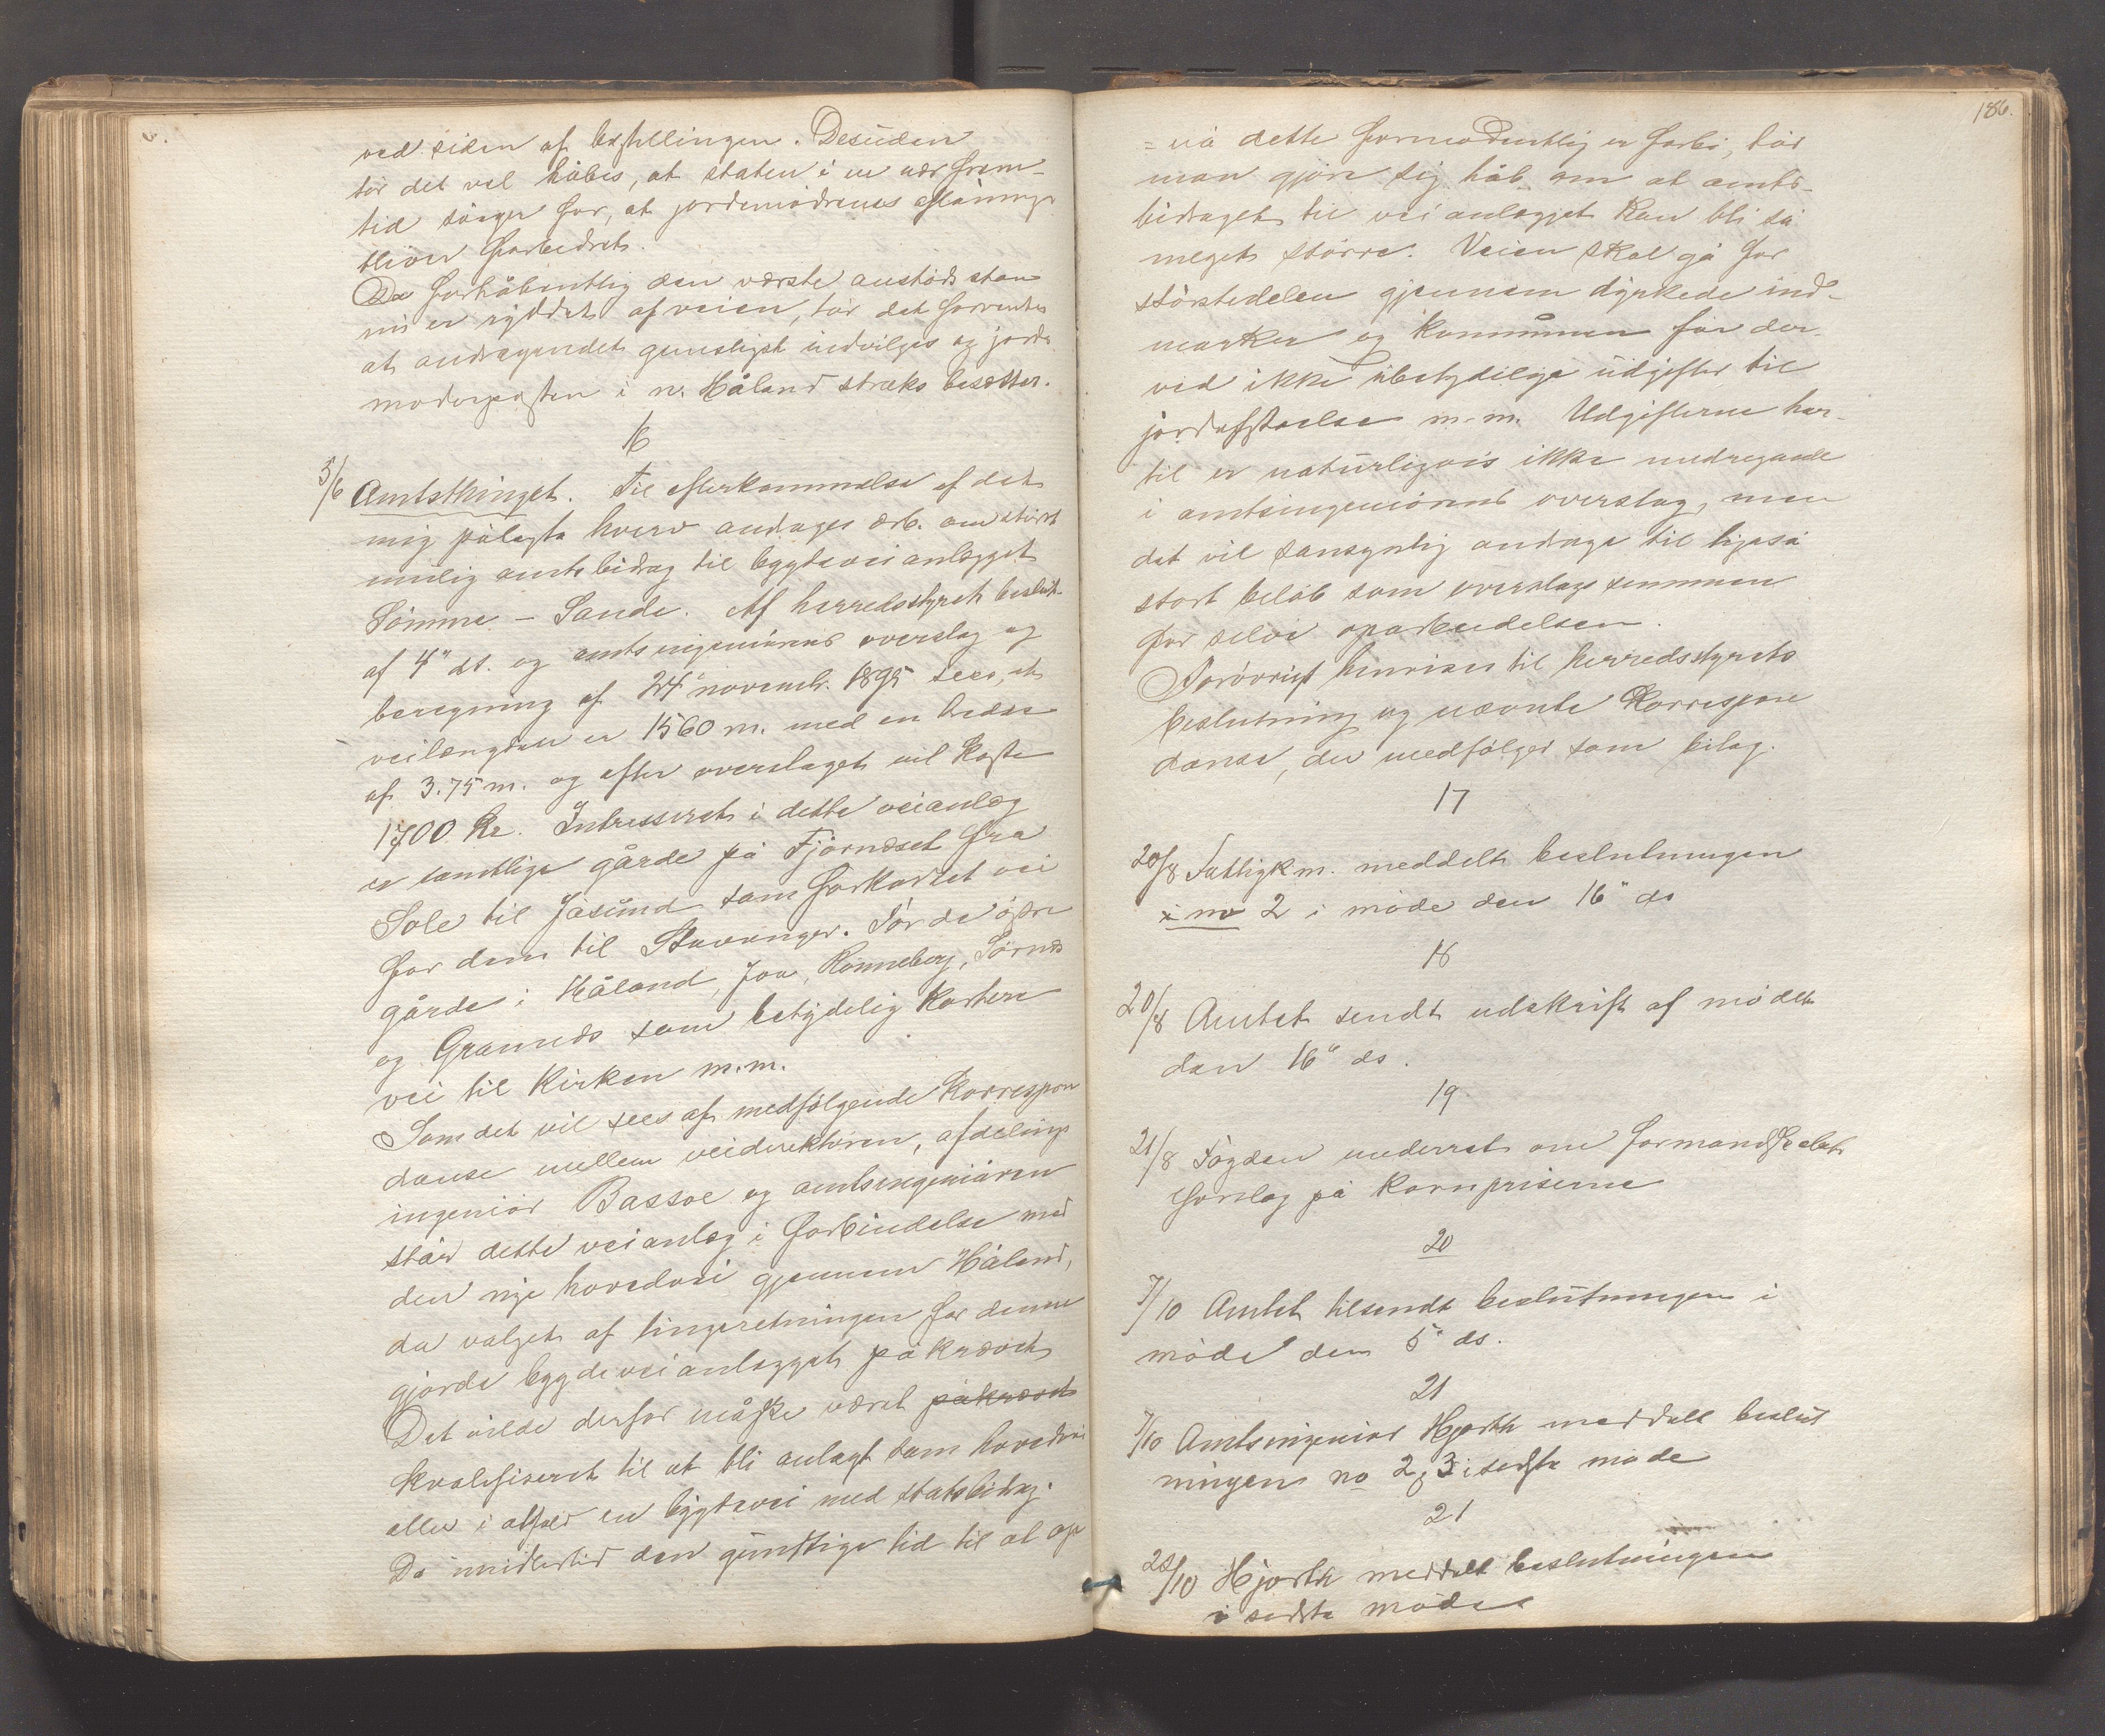 ved siden af bestillingen. Desuden
tör det vel håbes, at staten i en nær frem-
tid sörger for, at jordemödrenes aflönning
bliver forbedret.
Da forhåbentlig den værste anstöds sten
nu er ryddet af veien, tör det forventes
at andragendet gunstigst indvilges og jorde
moderposten i n. Håland straks besættes.
16
5/6 Amtsthinget. Til efterkommelse af det
mig pålagte hverv andrages ærb. om störst
mulig amtsbidrag til bygdeveianlægget
Sömme - Sande. Af herredsstyrets beslut.
af 4" ds. og amtsingeniörens overslag og
beregning af 24" novemb. 1895 sees, at
veilængden er 1560 m. med en bredde
af 3.75 m. og efter overslaget vil koste
1700 kr. Intresseret i dette veianlæg
er samtlige gårde på Tjörnæset fra
Sole til Jåsund som forkortet vei
for dem til Stavanger. For de öfre
gårde i Håland, Joa, Rönneberg, Sörnæs
og Grannæs som betydelig kortere
vei til kirken m.m.
Som det vil sees af medfölgende korrespon
danse mellem veidirektören, afdelings
ingeniör Bassöe og amtsingeniören
står dette veianlæg i forbindelse med
den nye hovedvei gjennem Håland,
da valget af lingeretningen for denne
gjorde bygdeveianlægget påkrævet
Det vilde derfor måske været påkrævet
kvalifiseret til at bli anlagt som hovedvei
eller i alfald en bygdevei med statsbidrag.
Da imidlertid den gunstige tid til at op
186.
= nå dette formodentlig er forbi, tör
man gjöre sig håb om at amts-
bidraget til veianlægget kan bli så
meget större. Veien skal gå for
störstedelen gjennem dyrkede ind-
marker og kommunen får der-
ved ikke ubetydelige udgifter til
jordafståelse m.m. Udgifterne her-
til er naturligvis ikke medregnede
i amtsingeniörens overslag, men
det vil sansynlig andrage til ligeså
stort belöb som overslagssummen
for selve oparbeidelsen.
Forövrigt henvises til herredsstyrets
beslutning og nævnte korrespon
danse, der medfölger som bilag.
17
20/8 Fattigkm. meddelt beslutningen
i no 2 i möde den 16" ds
18
20/8 Amtet sendt udskrift af mödet
den 16" ds.
19
21/8 Fogden underret om formandskabets
forslag på kornpriserne
20
7/10 Amtet tilsendt beslutningen i
möde den 5" ds.
21
7/10 Amtsingeniör Hjorth meddelt beslut
ningen no 2 & 3 i sidste möde
21
28/10 Hjorth meddelt beslutningen
i sidste möde